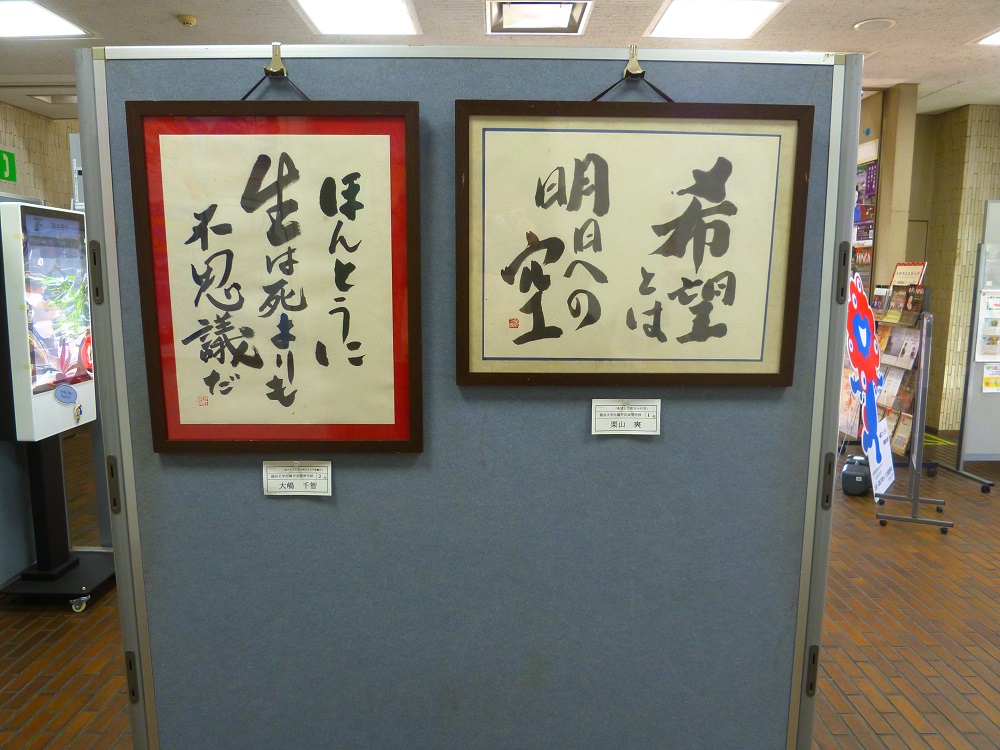 ほんとうに
生は死よりも
不思議だ
大嶋
希望
とは
明日への
空
栗山 爽